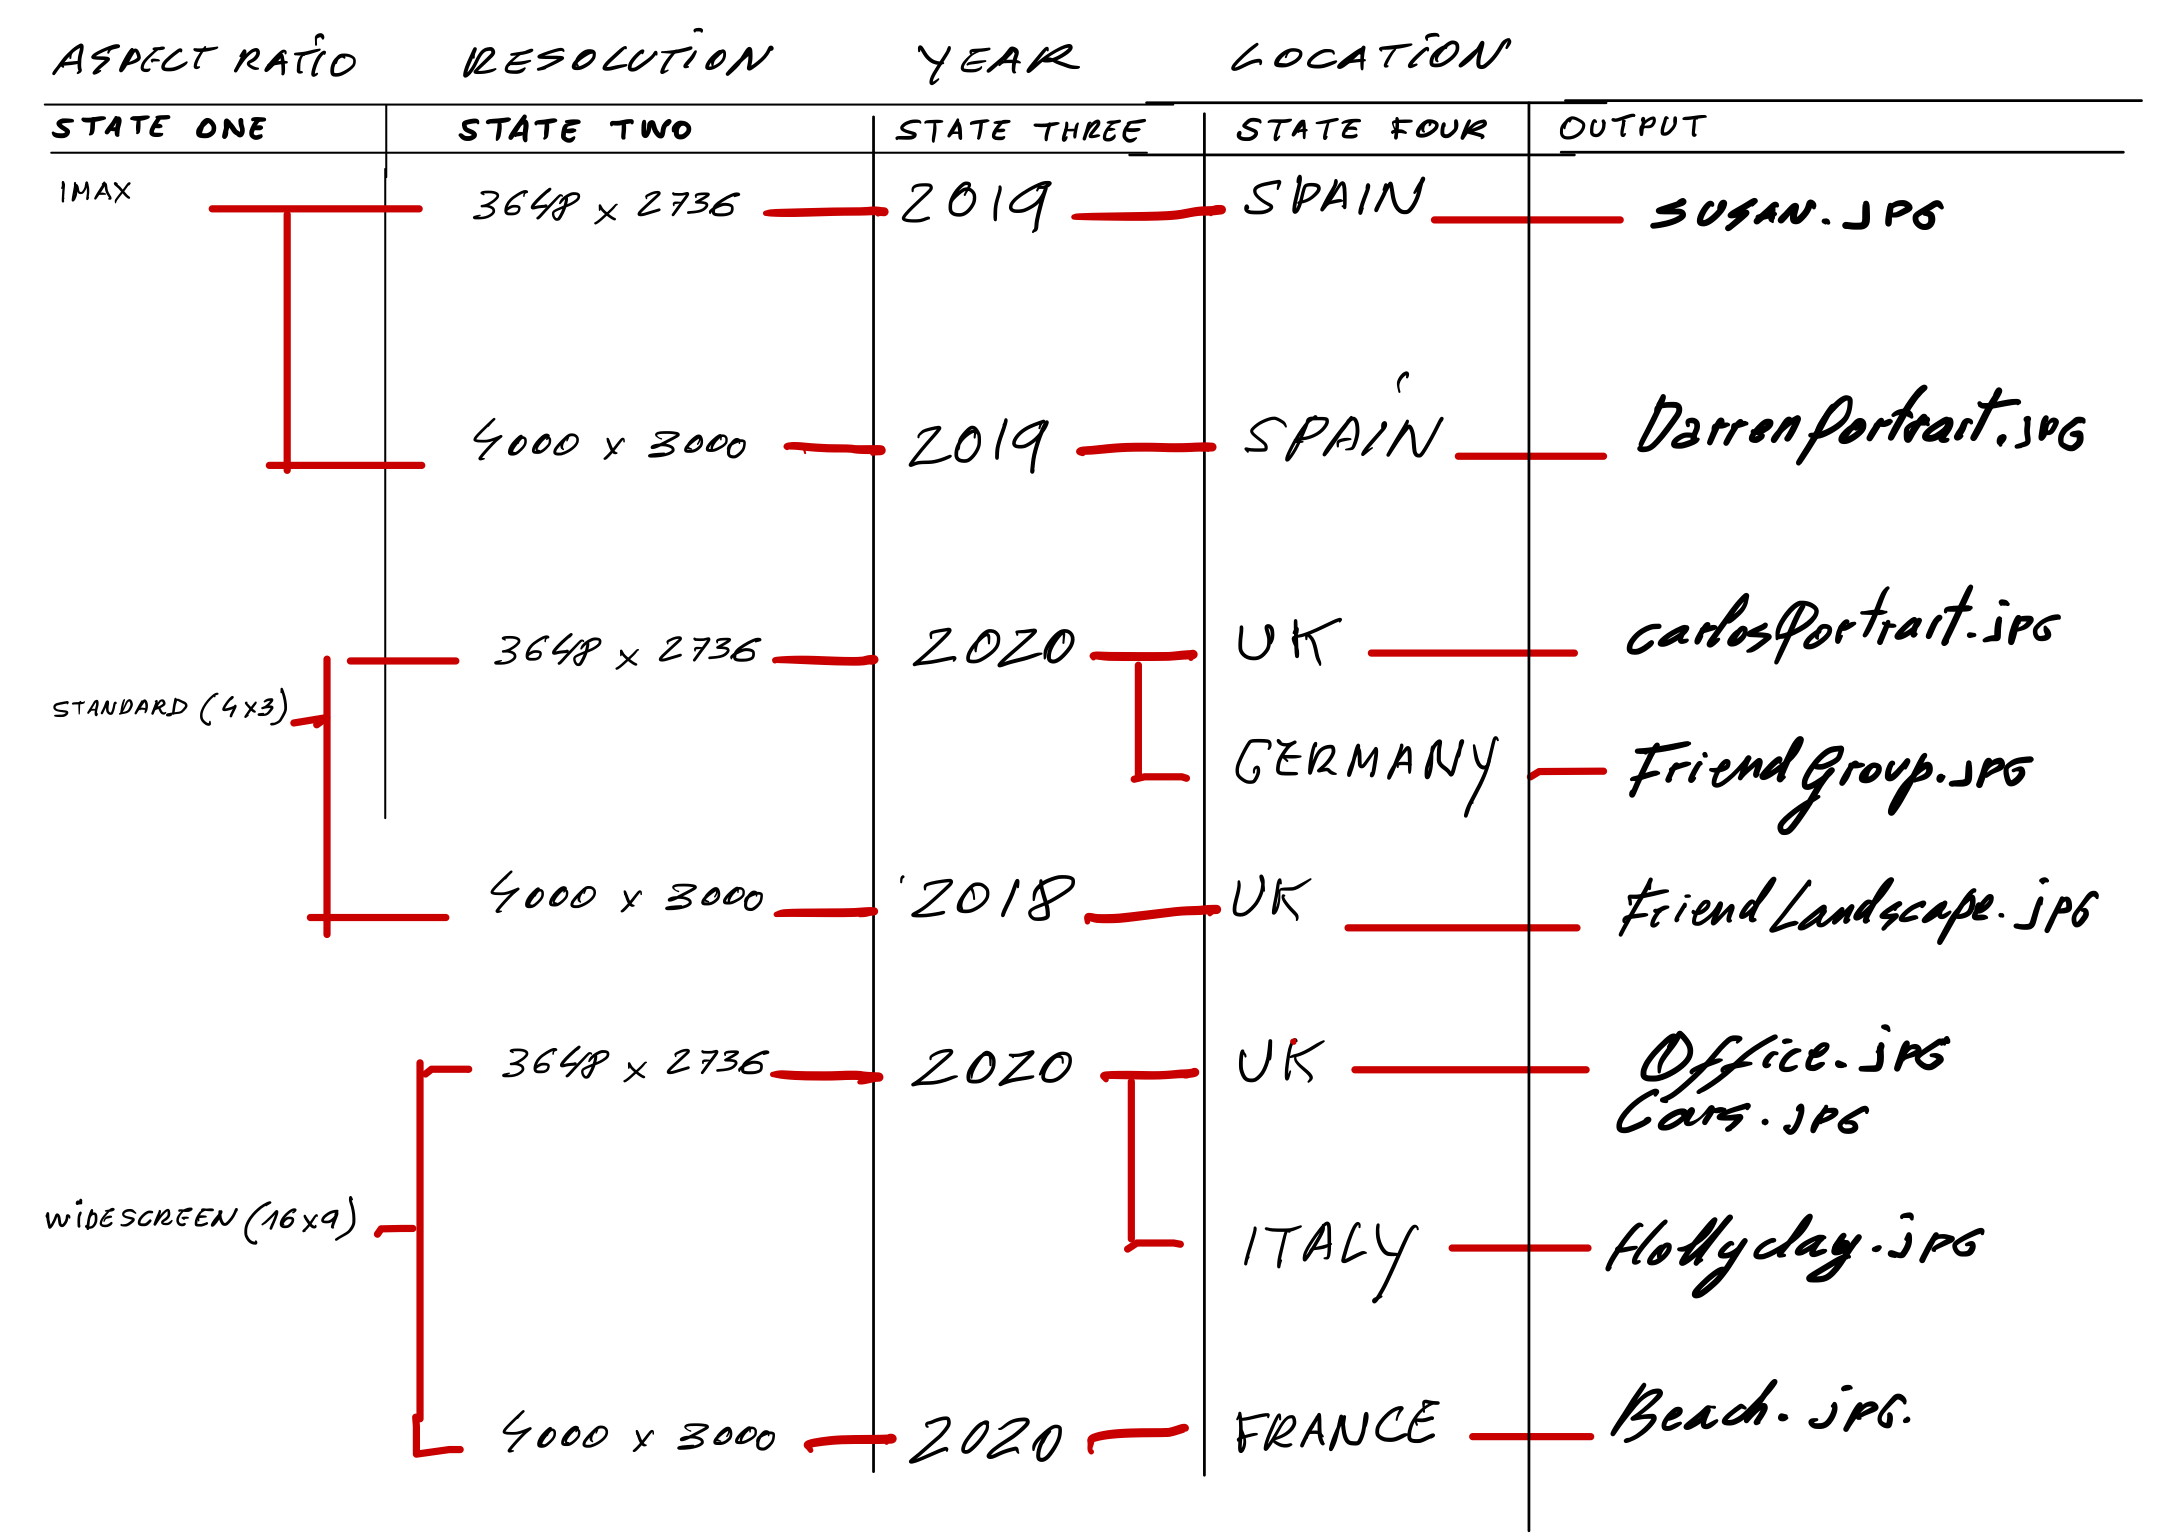 ASPECT RATiO RESOLUTiON YEAR LOCATiON
STATE ONE STATE TWO STATE THREE STATE FOUR OUTPUT
IMAX 3648 x 2736 2019 SPAIN SUSAN.JPG
4000 x 3000 2019 SPAIN DarrenPortrait.jPG
3648 x 2736 2020 UK carlosPortrait.jpG
STANDARD (4x3)
GERMANY FriendGroup.JPG
4000 x 3000 2018 UK FriendLandscape.jpG
3648 x 2736 2020 UK Office.jPG
Cars.JPG
WiDESCREEN (16x9) ITALY Hollyclay.jPG
4000 x 3000 2020 FRANCE Beach.jpG.